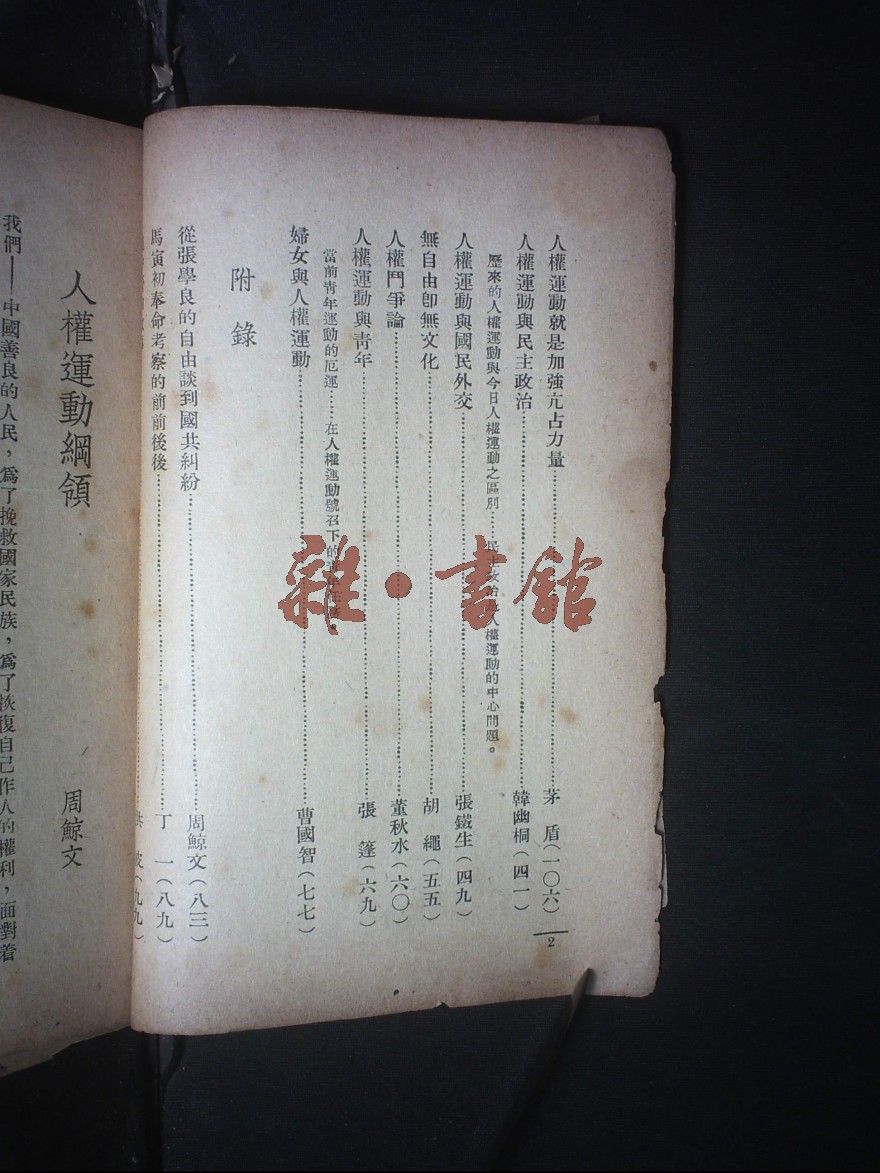 人權運動就是加強亢占力量……茅　盾（一〇六）
人權運動與民主政治……韓幽桐（四一）
歷來的人權運動與今日人權運動之區別……民主政治是人權運動的中心問題。
人權運動與國民外交……張鐵生（四九）
無自由卽無文化……胡　繩（五五）
人權鬥爭論……董秋水（六〇）
人權運動與靑年……張　篷（六九）
當前靑年運動的厄運……在人權運動號召下的
婦女與人權運動……曹國智（七七）
附錄
從張學良的自由談到國共糾紛……周鯨文（八三）
馬寅初奉命考察的前前後後……丁　一（八九）
（九九）
2
雜・書館
人權運動綱領
周鯨文
我們——中國善良的人民，爲了挽救國家民族，爲了恢復自己作人的權利，面對着